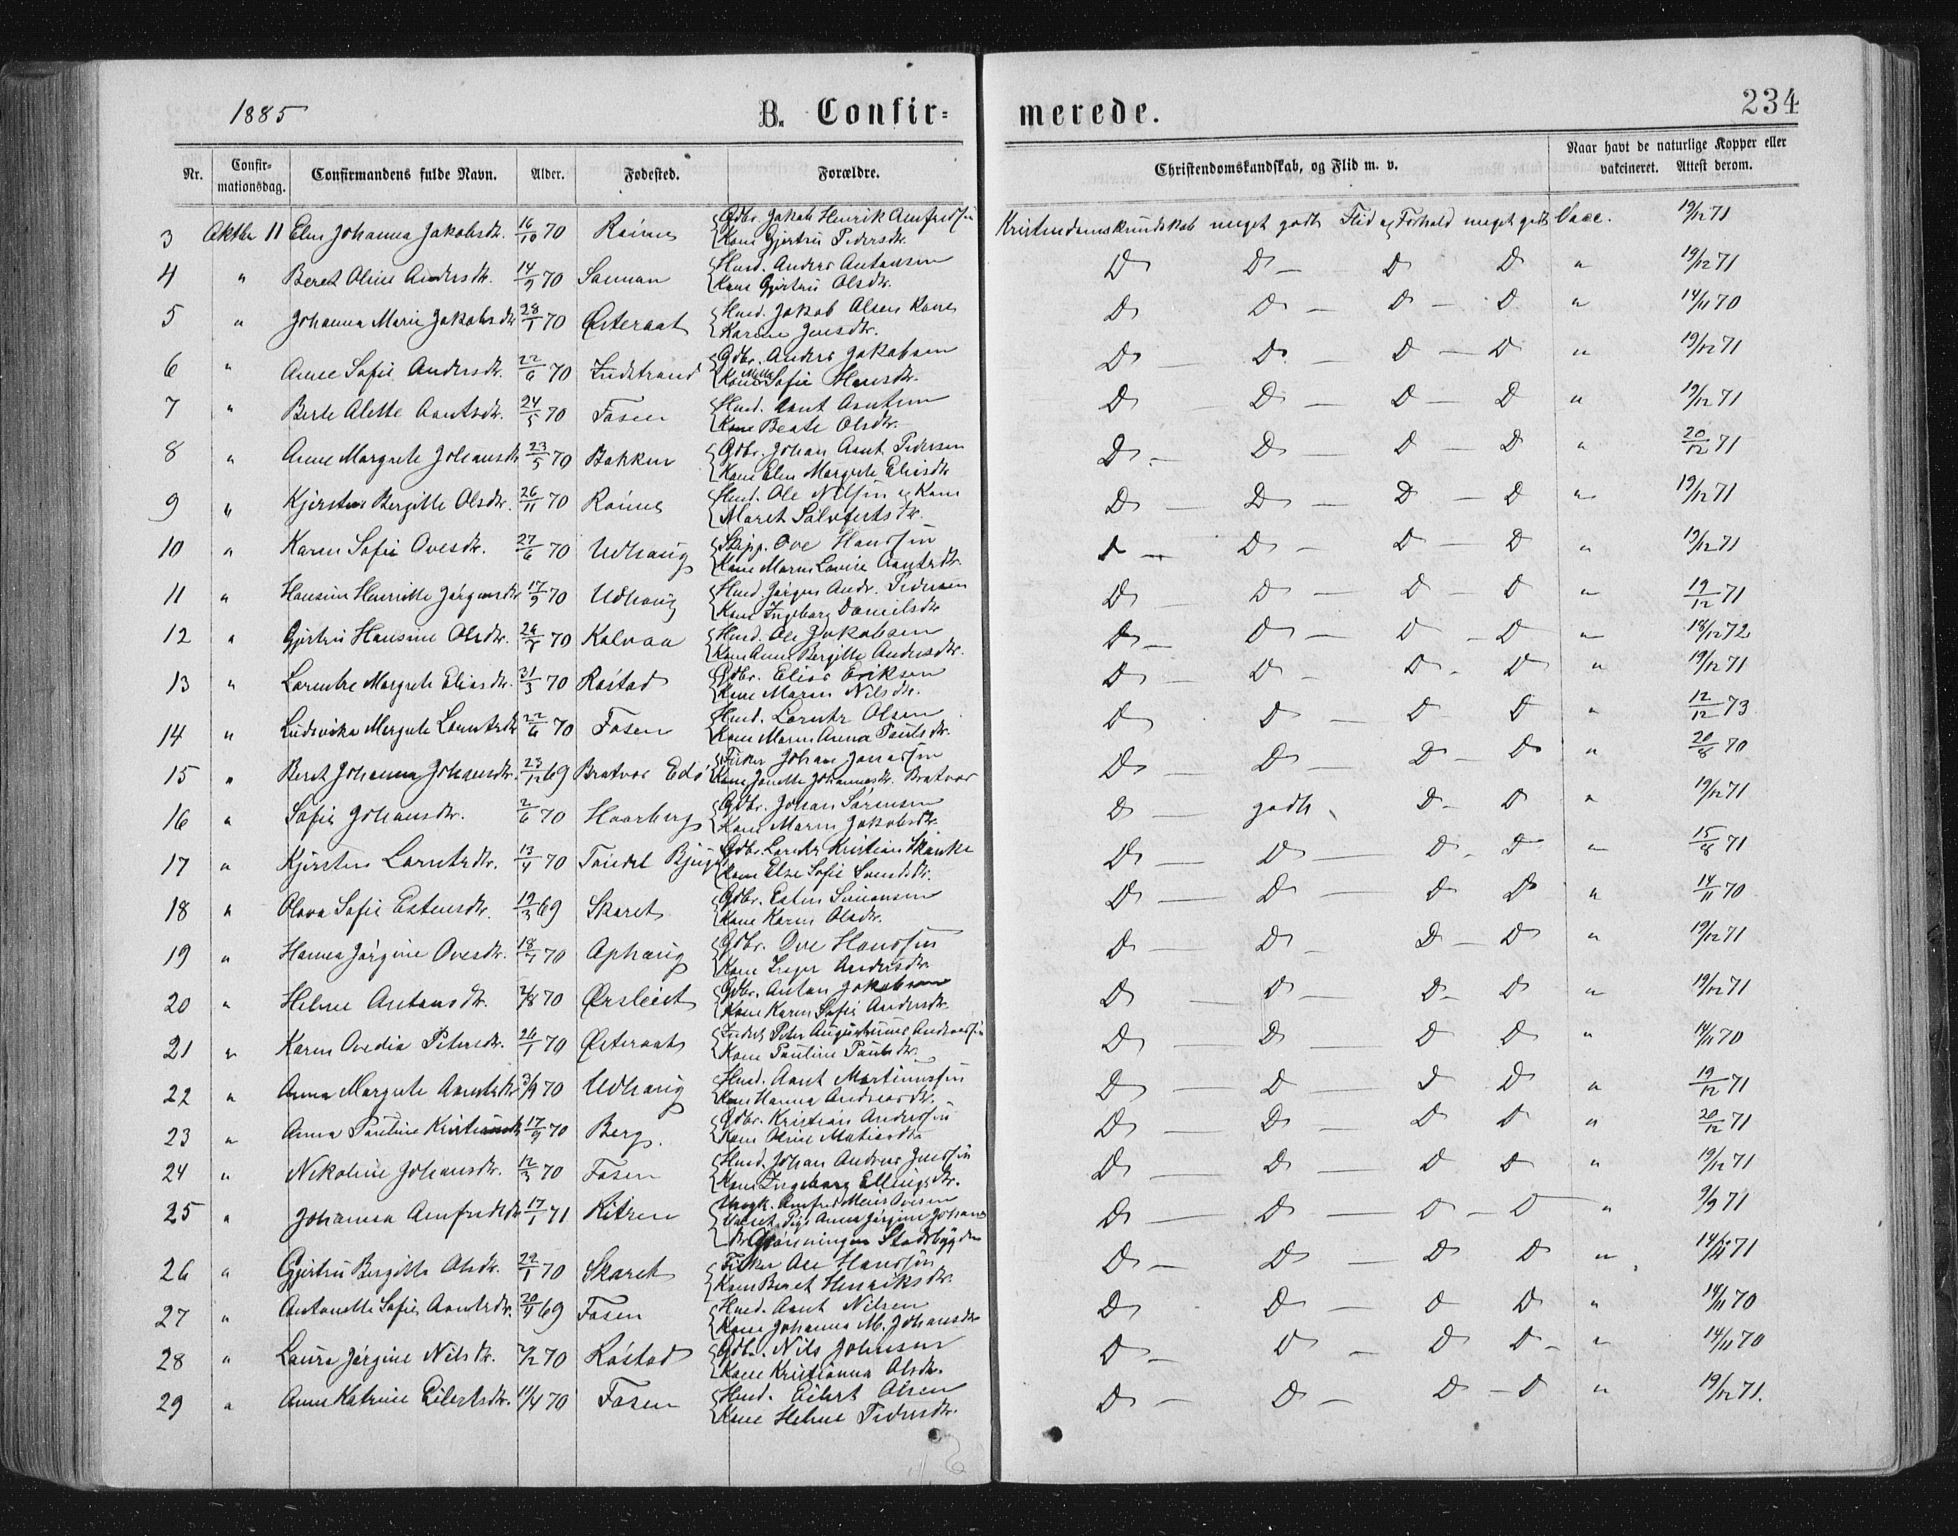 1885 B. Confir= merede. 234
Nr. Confir-mationsdag. Confirmandens fulde Navn. Alder. Fødested. Forældre. Christendomskundskab, og Flid m. v. Naar havt de naturlige Kopper eller vakcineret. Attest derom.
3 Oktbr 11 Elen Johanna Jakobsdr. 16/10 70 Røines {Gdbr. Jakob Henrik Arnfredsen Kristendomskundskab meget godt Flid og Forhold meget godt Vacc. 19/12 71
Kone Gjertru Pedersdr.
4 " Beret Oline Andersdr. 14/9 70 {Husd. Anders Antonsen D D - D D " 19/12 71
Kone Gjertru Olsdr.
5 " Johanna Marie Jakobsdr 28/1 70 Østeraat {Husd. Jakob Olsen Kone D D - D - D " 14/11 70
Karen Jensdr.
6 " Anne Sofie Andersdr. 22/6 70 Indstrand {Gdbr. Anders Jakobsen D D - D - D " 19/12 71
Kone Sofie Hansdr.
7 " Berte Alette Arntsdr. 24/5 70 Fosen {Husd. Arnt Arntsen D - D - D - D " 19/12 71
Kone Beate Olsdr.
8 " Anne Margrete Johansdr 23/5 70 Bakken {Gdbr. Johan Arnt Pedersen D - D - D - D " 20/12 71
Kone Elen Margrete Eliasdr
9 " Kjersten Bergitte Olsdr. 26/11 70 Røines {Husd. Ole Nilsen og Kone D - D - D - D " 19/12 71
Maret
10 " Karen Sofie Ovesdr. 27/6 70 Udhaug {Skipp. Ove Hanssen D - D - D - D " 19/12 71
Kone Maren Lovise Arntsdr.
11 " Hansine Henriette Jørgensdr 17/9 70 Udhaug {Husd. Jørgen Andr. Pedersen D - D - D - D " 19/12 71
Kone Ingeborg Danielsdr
12 " Gjertru Hansine Olsdr. 70 Kalvaa {Husd. Ole Jakobsen D - D - D - D " 18/12 72
Kone Anne Bergitte Andersdr.
13 " Lorentze Margrete Eliasdr. 31/3 70 Røstad {Gdbr. Elias Eriksen D - D - D - D " 19/12 71
Kone Maren Nilsdr.
14 " Ludovika Margrete Lorntsdr 22/6 70 Fosen {Husd. Lornts Olsen D D - D D " 12/12 73
Kone Maren Anna Paulsdr.
15 " Beret Johanna Johansdr. 23/12 69 Bratvær Edø {Fisker Johan Jonassen D - D - D - D " 20/8 70
Kone Jonette Johannesdr. Bratvær
16 " Sofie Johansdr. 2/6 70 Hoarberg {Gdbr. Johan Sørensen D - godt D - D " 19/12 71
Kone Maren Jakobsdr.
17 " Kjersten Lorntsdr. 13/4 70 Bjugn {Gdbr. Lornts Kristian Skanke D - D - D - D " 15/8 71
Kone Else Sofie
18 " Olava Sofie Estensdr. 19/3 69 Skaret {Gdbr. Esten Simonsen D - D - D D " 14/11 70
Kone Karen Olsdr.
19 " Hanna Jørgine Ovesdr. 18/7 70 Ophaug {Gdbr. Ove Hanssen D - D - D - D " 19/12 71
Kone Andersdr.
20 " Helene Antonsdr. 2/8 70 Ørsleiet {Gdbr. Anton Jakobsen D - D - D - D " 19/12 71
Kone Karen Sofie Andersdr.
21 " Karen Ovedia Petersdr. 26/1 70 Østeraat {Inderst Peter Augustinus Andreassen D - D - D D " 14/11 70
Kone Pauline Paulsdr.
22 " Anna Margrete Arntsdr 3/9 70 Udhaug {Husd. Arnt Martinussen D - D - D D " 19/12 71
Kone Hanna Andreasdr.
23 " Anna Pauline Kristiansdr 17/9 70 Berg. {Gdbr. Kristian Anderssen D - D - D D " 20/12 71
Kone Oline Matiasdr
24 " Nikoline Johansdr. 12/3 70 Fosen {Husd. Johan Andreas Jenssen D - D - D D " 19/12 71
Kone Ingeborg Ellingsdr.
25 " Johanna Arnfredsdr 17/1 71 Kitren {Ungk. Arnfred Meier Ovesen D - D - D - D " 9/9 71
Pige Anna Jørgine Johans
dr. Stadsbygden
26 " Gjertru Bergitte Olsdr. 22/1 70 Skaret {Fisker Ole Hanssen D - D - D D " 14/11 71
Kone Beret Henriksdr.
27 " Antonette Sofie Arntsdr. 69 Fosen {Husd. Arnt Nilsen D D - D D " 14/11 70
Kone Johanna M. Johansdr
28 " Laura Jørgine Nilsdr. 2/2 70 Røstad {Gdbr. Nils Johnsen D - D - D D - " 14/11 70
Kone Kristianna Olsdr.
29 " Anne Katrine Eilertsdr. 11/4 70 Fosen {Husd. Eilert Olsen D - D - D - D " 19/12 71.
Kone Helene Pedersdr.